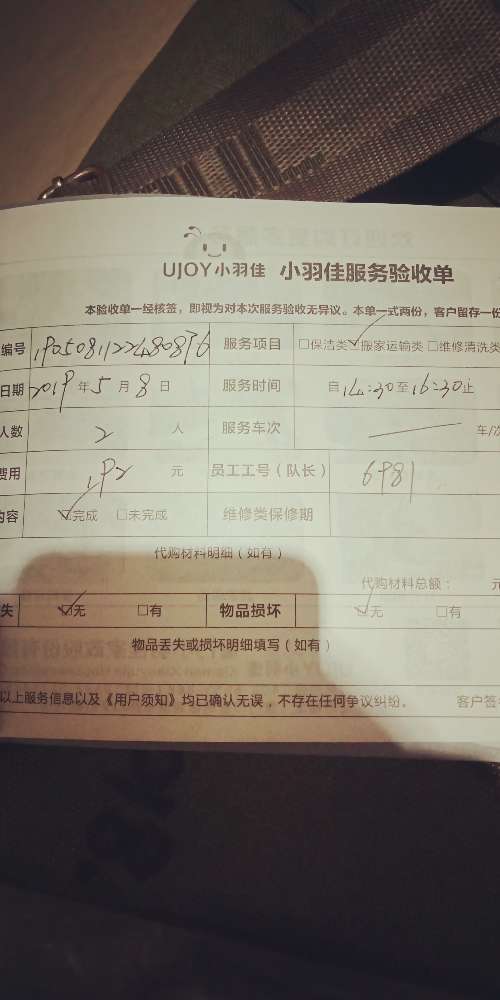 UJOY小羽佳 小羽佳服务验收单
本验收单一经核签，即视为对本次服务验收无异议。本单一式两份，客户留存一份
编号 服务项目 □保洁类☑搬家运输类□维修清洗类
日期 2019年5月8日 服务时间 自14:30至16:30止
人数 2 人 服务车次 车/次
费用 192 元 员工工号（队长） 6981
内容 ☑完成 □未完成 维修类保修期
代购材料明细（如有）
代购材料总额： 元
失 ☑无 □有 物品损坏 ☑无 □有
物品丢失或损坏明细填写（如有）
以上服务信息以及《用户须知》均已确认无误，不存在任何争议纠纷。 客户签